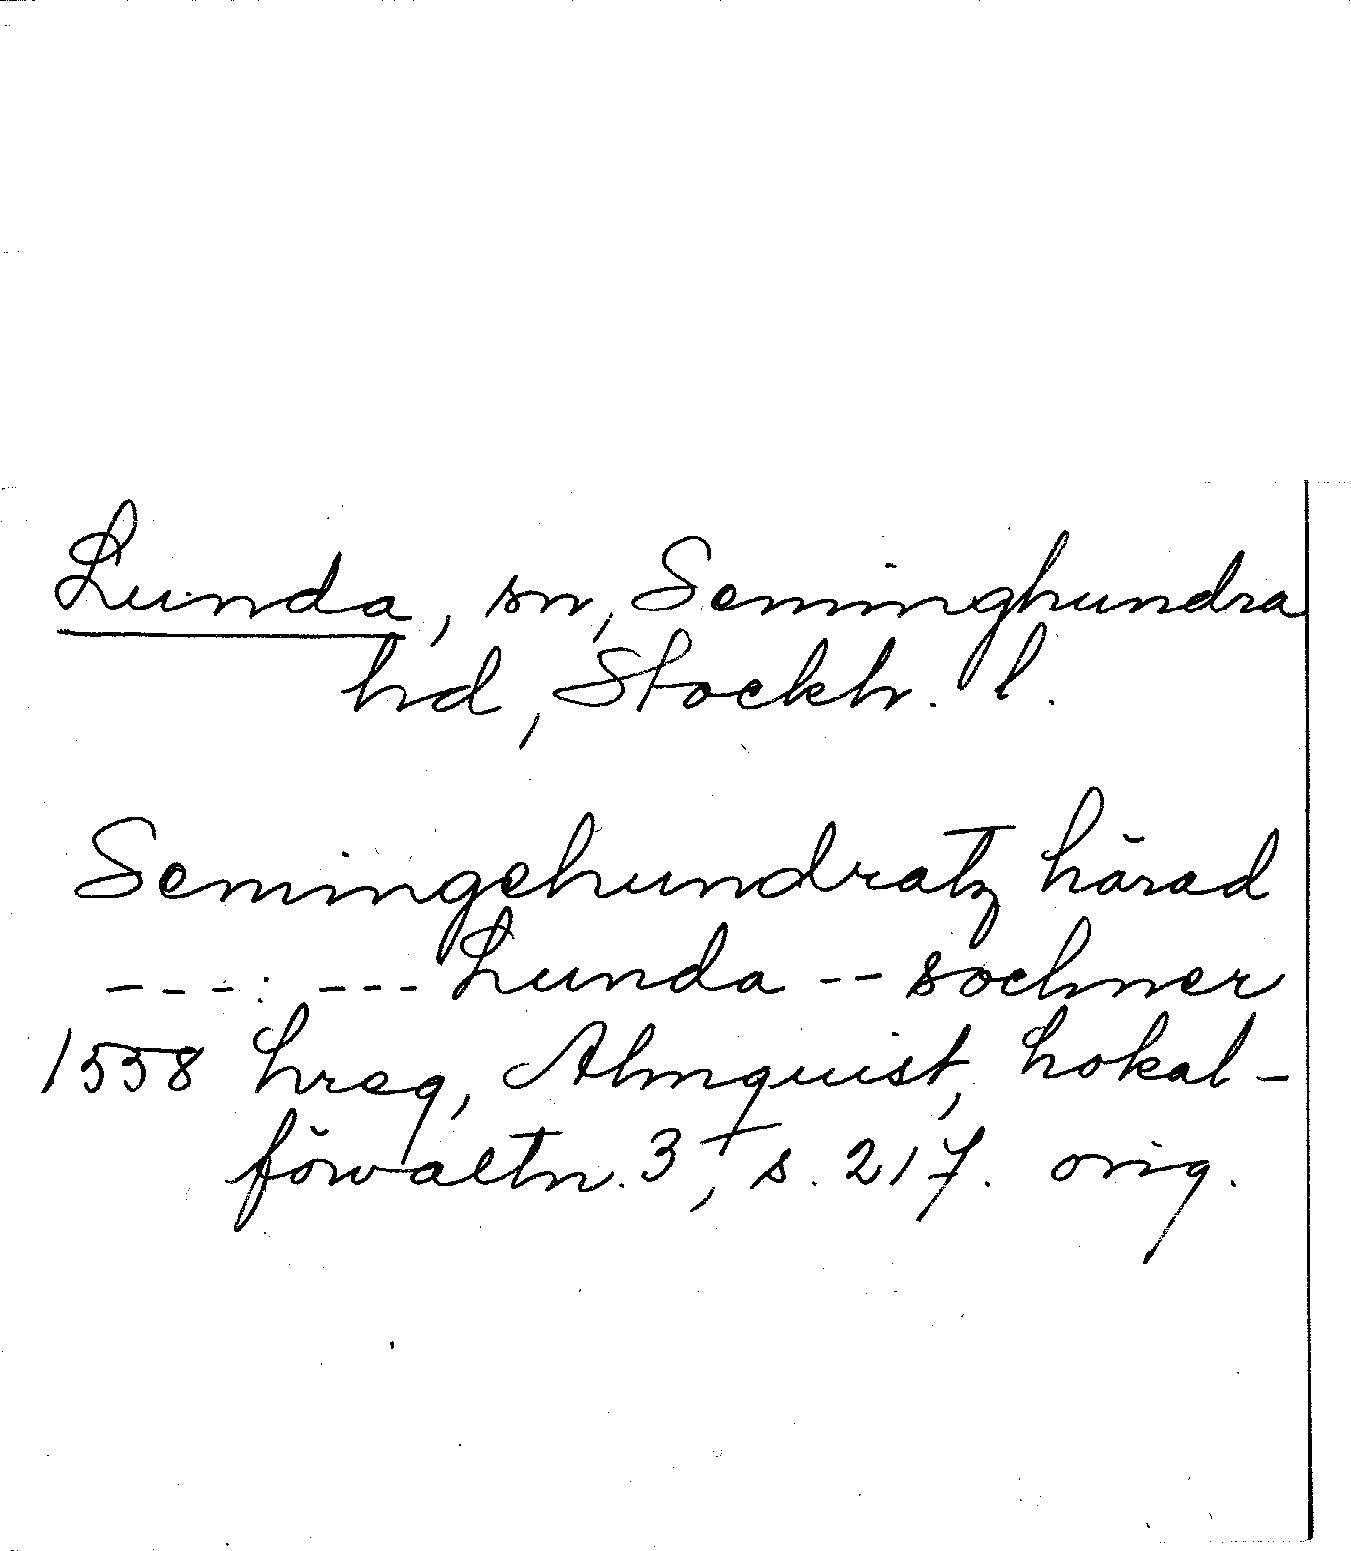 Lunda, sn, Seminghundra
hd, Stockh. l.
Semingehundratz härad
---:---Lunda--sochner
1558 hreg, Almquist, Lokal-
förvaltn. 3, s. 217. orig.